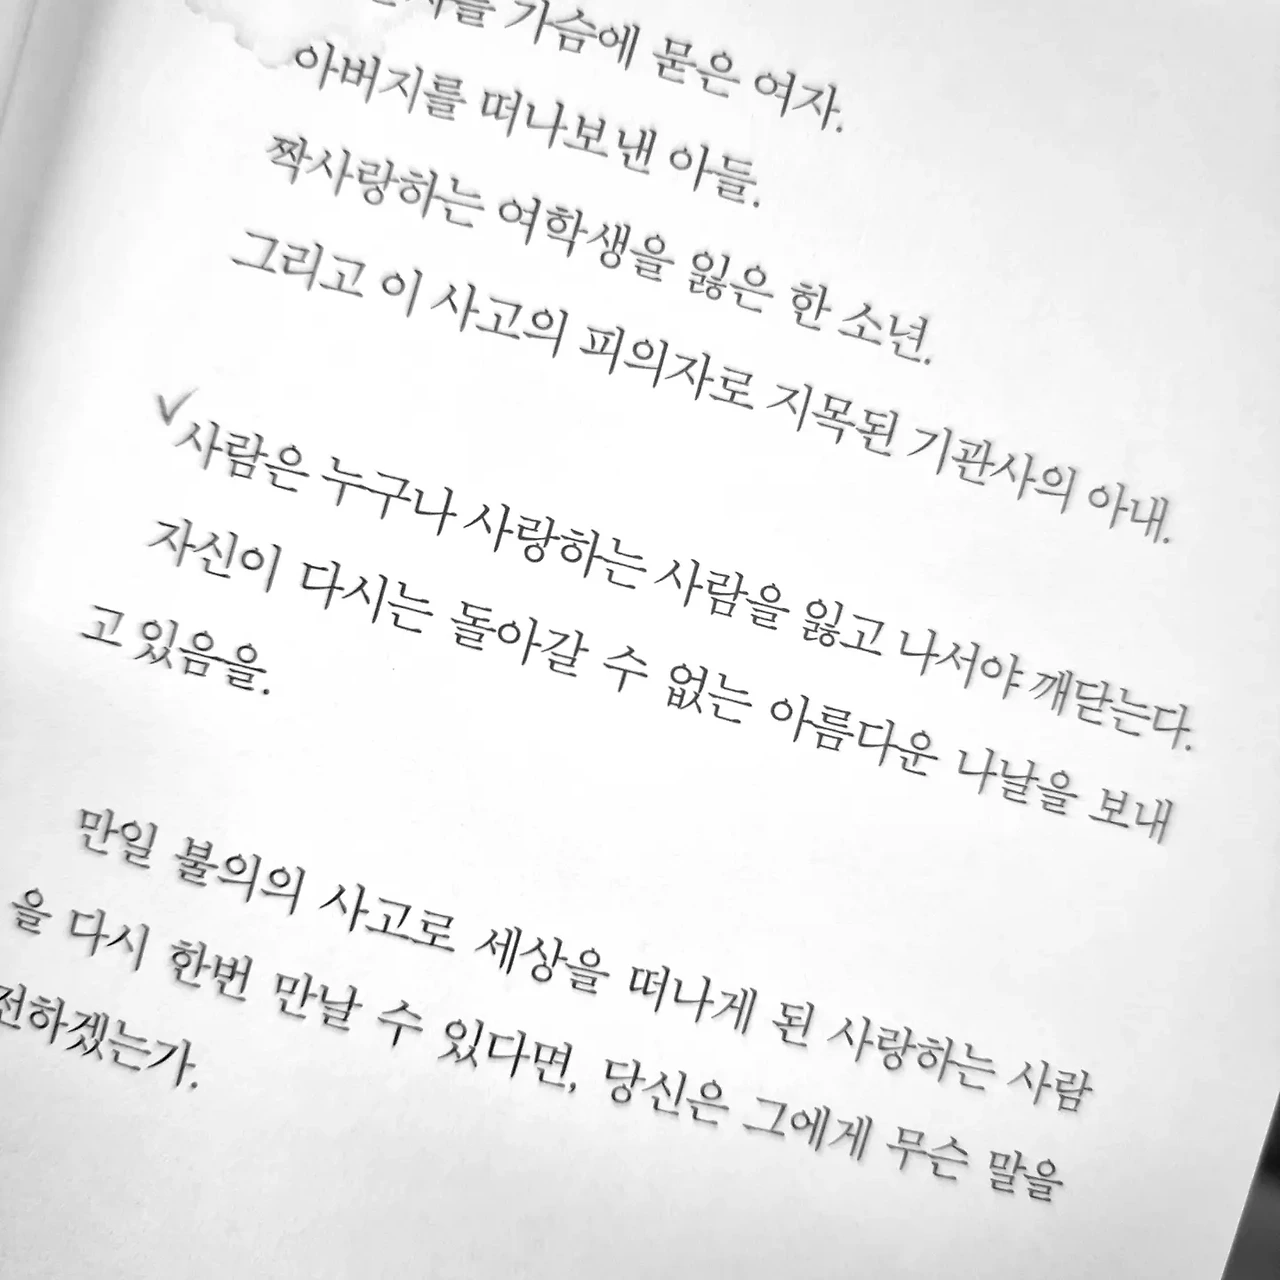 가슴에 묻은 여자.
아버지를 떠나보낸 아들.
짝사랑하는 여학생을 잃은 한 소년.
그리고 이 사고의 피의자로 지목된 기관사의 아내.
사람은 누구나 사랑하는 사람을 잃고 나서야 깨닫는다.
자신이 다시는 돌아갈 수 없는 아름다운 나날을 보내
고 있음을.
만일 불의의 사고로 세상을 떠나게 된 사랑하는 사람
을 다시 한번 만날 수 있다면, 당신은 그에게 무슨 말을
전하겠는가.